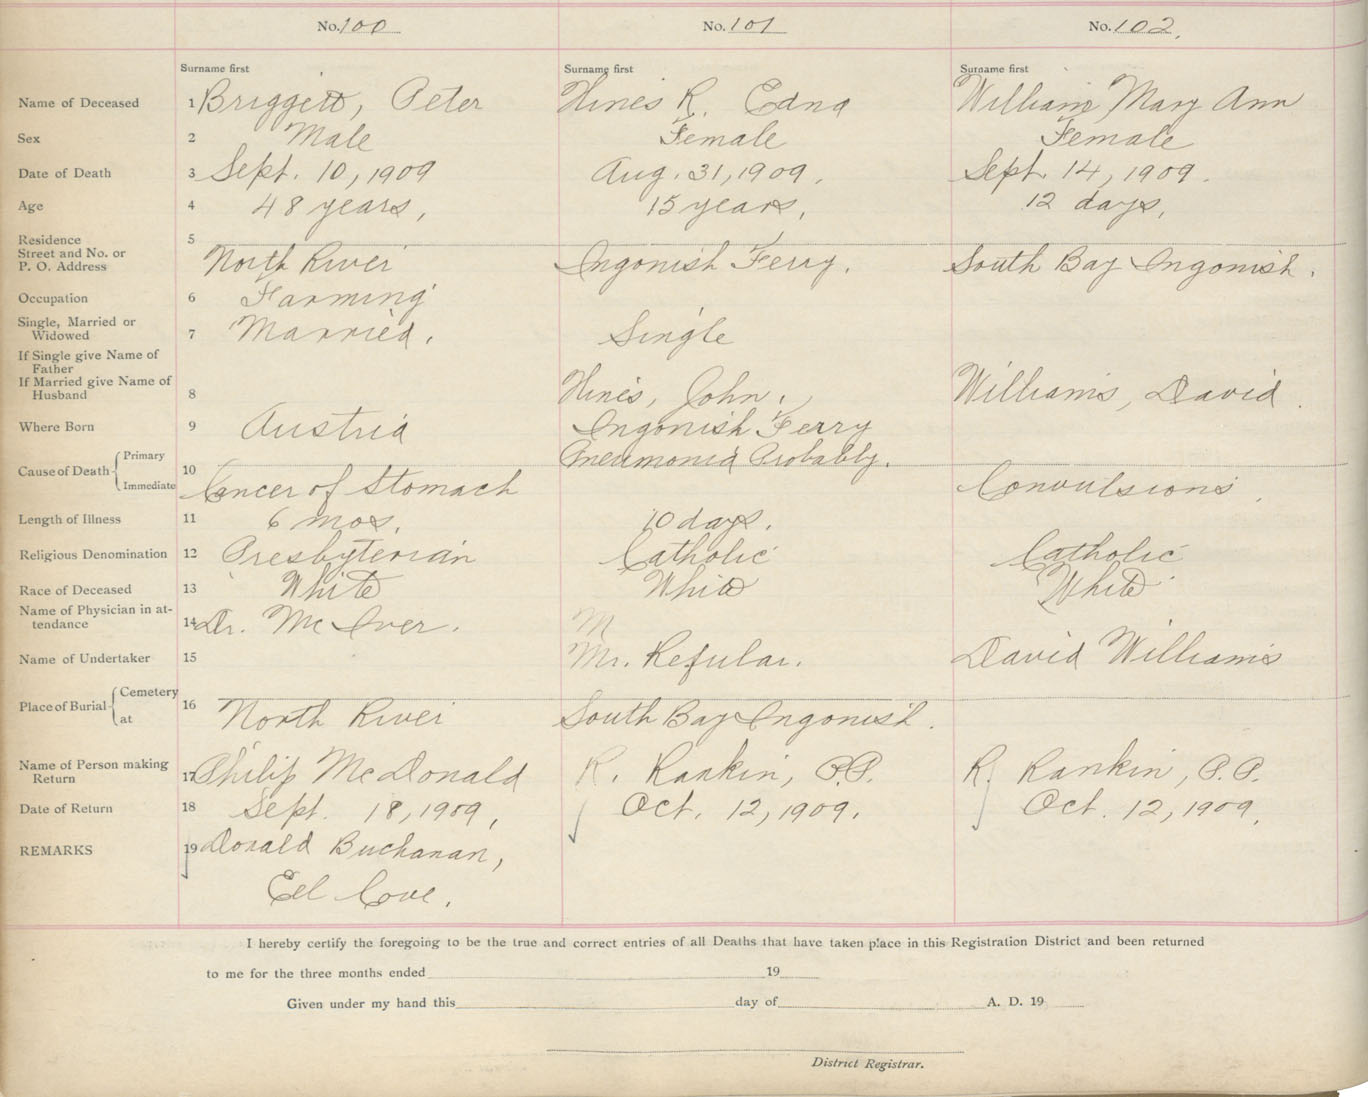 No. 100 No. 101 No. 102.
Surname first Surname first Surname first
Name of Deceased 1 Briggett, Peter Hines R. Edna William Mary Ann
Sex 2 Male Female Female
Date of Death 3 Sept. 10, 1909 Aug. 31, 1909. Sept. 14, 1909.
Age 4 48 years, 15 years, 12 days,
Residence 5
Street and No. or
P. O. Address North River Ingonish Ferry. South Bay Ingonish.
Occupation 6 Farming
Single, Married or
Widowed 7 Married. Single
If Single give Name of
Father
If Married give Name of
Husband 8 Hines, John, Williams, David.
Where Born 9 Austria Ingonish Ferry
Cause of Death { Primary 10 Pneumonia Probably.
Immediate Cancer of Stomach Convulsions.
Length of Illness 11 6 mos. 10 days.
Religious Denomination 12 Presbyterian Catholic Catholic
Race of Deceased 13 White White White
Name of Physician in at-
tendance 14 Dr. McIver. M
Name of Undertaker 15 Mr. David Williams
Place of Burial { Cemetery 16
at North River South Bay Ingonish.
Name of Person making
Return 17 Philip McDonald R. Rankin, P.P. R. Rankin, P.P.
Date of Return 18 Sept. 18, 1909, Oct. 12, 1909. Oct. 12, 1909.
REMARKS 19 Donald Buchanan,
Eel Cove.
I hereby certify the foregoing to be the true and correct entries of all Deaths that have taken place in this Registration District and been returned
to me for the three months ended 19
Given under my hand this day of A. D. 19
District Registrar.